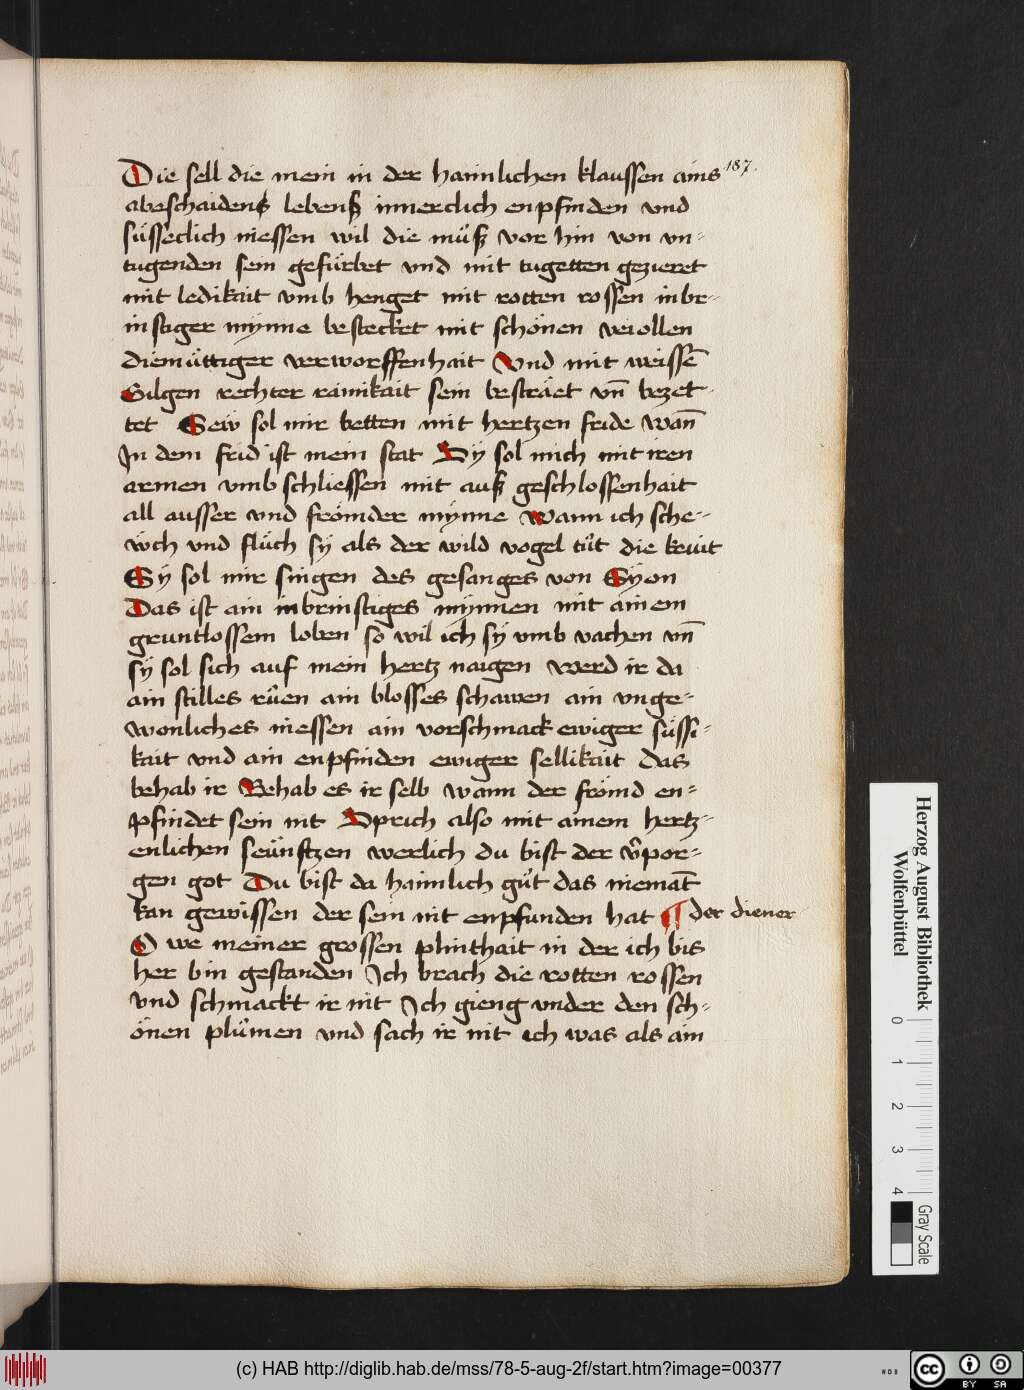 187.
Die sell die mein in der haimlichen klaussen ains
abeschaidens lebens innerclich enpfinden vnd
süsseclich niessen wil die müß vor hin von vn-
tugenden sein gefürbet vnd mit tugetten gezieret
mit ledikait vmb henget mit rotten rossen inbr-
instiger mynne bestecket mit schönen veiollen
diemüttiger verworffenhait Vnd mit weissē
Gilgen rechter rainikait sein besträet vn̄ bezet-
tet Sew sol mir betten mit hertzen fride wan̄
In dem frid ist mein stat Sy sol mich mit iren
armen vmb schliessen mit auß geschlossenhait
all ausser vnd frömder mynne Wann ich sche-
wch vnd fluch sy als der wild vogel tůt die keuit
Sy sol mir singen des gesanges von Syon
Das ist ain inbrinstiges mynnen mit ainem
gruntlossem loben so wil ich sy vmb vachen vn̄
sy sol sich auf mein hertz naigen Werd ir da
ain stilles růen ain blosses schawen ain vnge-
wonliches niessen ain vorschmack ewiger süssi-
kait vnd ain enpfinden ewiger sellikait das
behab ir Behab es ir selb wann der frömd en-
pfindet sein nit Sprich also mit ainem hertz-
enlichen seünftzen werlich du bist der v̊por-
gen got Du bist da haimlich gůt das niemāt
kan gewissen der sein nit enpfunden hat ¶ der diener
O we meiner grossen plinthait in der ich bis
her bin gestanden Ich brach die rotten rossen
vnd schmackt ir nit Ich gieng vnder den sch-
önen plůmen vnd sach ir nit ich was als ain
Herzog August Bibliothek
Wolfenbüttel
0 1 2 3 4
Gray Scale
(c) HAB http://diglib.hab.de/mss/78-5-aug-2f/start.htm?image=00377
WDB
cc BY SA